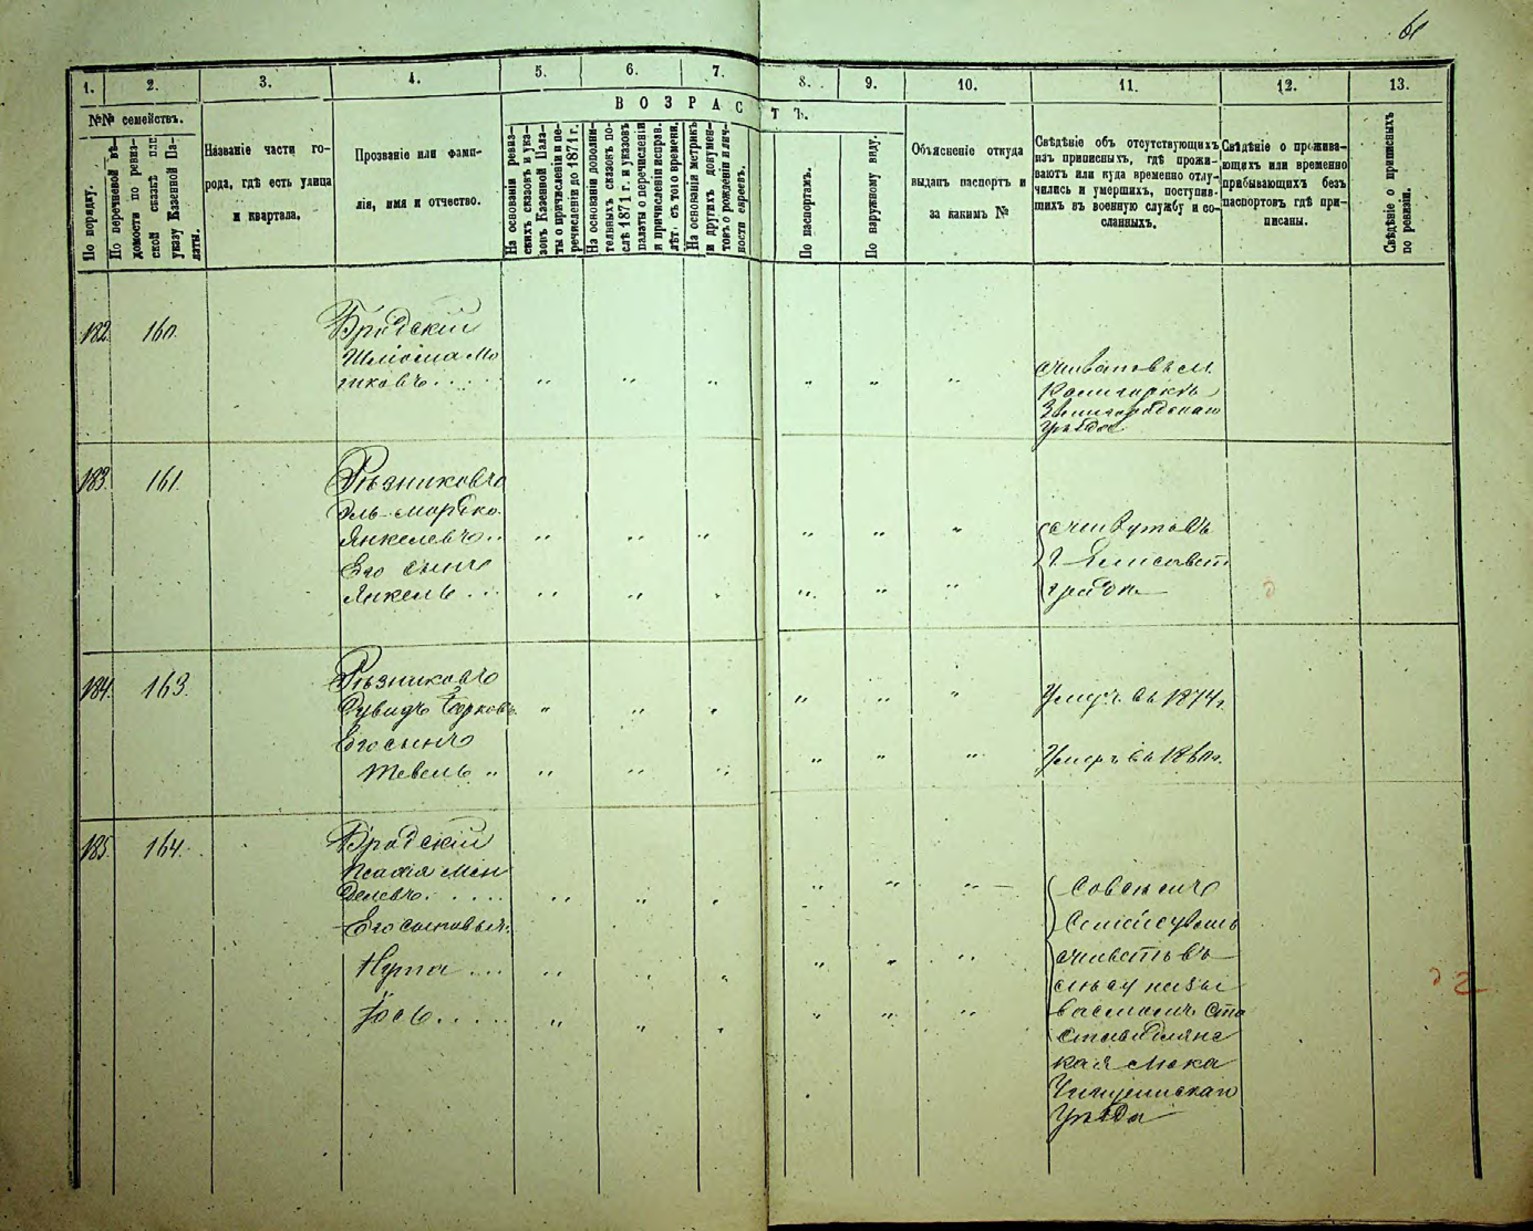 1. 2. 3. 4. 5. 6. 7. 8. 9. 10. 11. 12. 13.
№№ семействъ.
По порядку.
По перечневой вѣ-
домости по ревиз-
ской сказкѣ или
указу Казенной Па-
латы.
Названіе части го-
рода, гдѣ есть улица
и квартала.
Прозваніе или фами-
лія, имя и отчество.
ВОЗРАСТЪ.
На основаніи ревиз-
скихъ сказокъ и ука-
зокъ Казенной Пала-
ты о причисленіи и пе-
речисленіи до 1871 г.
На основаніи дополни-
тельныхъ сказокъ по-
слѣ 1871 г. и указовъ
палаты о перечисленіи
и причисленіи исправ.
лѣт. съ того времени.
На основаніи метрикъ
и другихъ докумен-
товъ о рожденіи и лич-
ности евреевъ.
По паспортамъ.
По наружному виду.
Объясненіе откуда
выданъ паспортъ и
за какимъ №
Свѣдѣніе объ отсутствующихъ
изъ приписныхъ, гдѣ прожи-
ваютъ или куда временно отлу-
чились и умершихъ, поступив-
шихъ въ военную службу и со-
сланныхъ.
Свѣдѣніе о прожива-
ющихъ или временно
прибывающихъ безъ
паспортовъ гдѣ при-
писаны.
Свѣдѣніе о приписныхъ
по ревизіи.
182. 160. Бродскій
Шліома Мо
шковъ
Звенигородскаго
Уѣзда
183. 161. Рѣзниковъ
Эль-Мордко
Янкелевъ
Его сынъ
Янкель
живутъ въ
г. Елисавет
градѣ
184. 163. Рѣзниковъ
Берковъ Умеръ въ 1874 г.
Его сынъ
Тевель Умеръ въ 1860 г.
185. 164. Бродскій
Исаія Мен
делевъ
Его сыновья:
Нута
Іось
со всѣмъ
Семействомъ
живетъ въ
кая
Чигиринскаго
Уѣзда